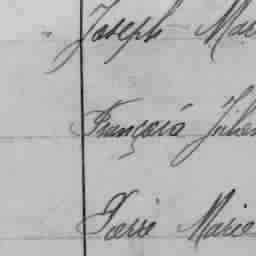 Joseph Mar
François Julien
Pierre Marie